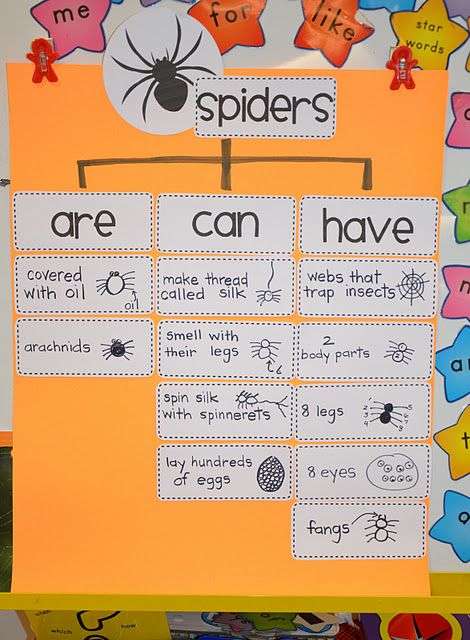 me
for
like
star
words
spiders
are
can
have
covered
with oil
oil
arachnids
make thread
called silk
smell with
their legs
spin silk
with spinnerets
lay hundreds
of eggs
webs that
trap insects
2
body parts
8 legs
8 eyes
fangs
which
how